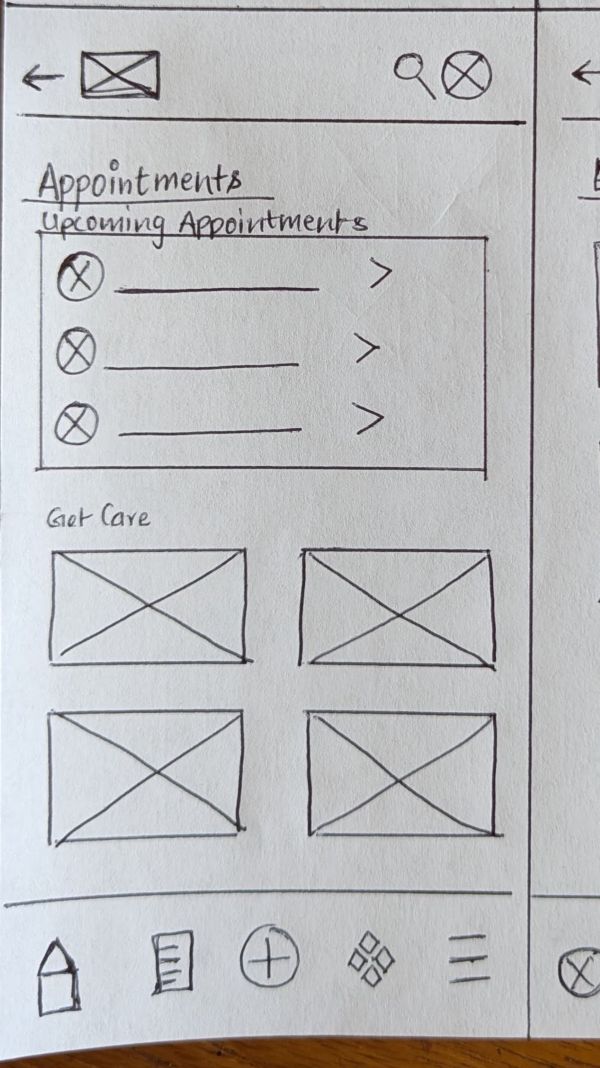 Appointments
Upcoming Appointments
Get Care